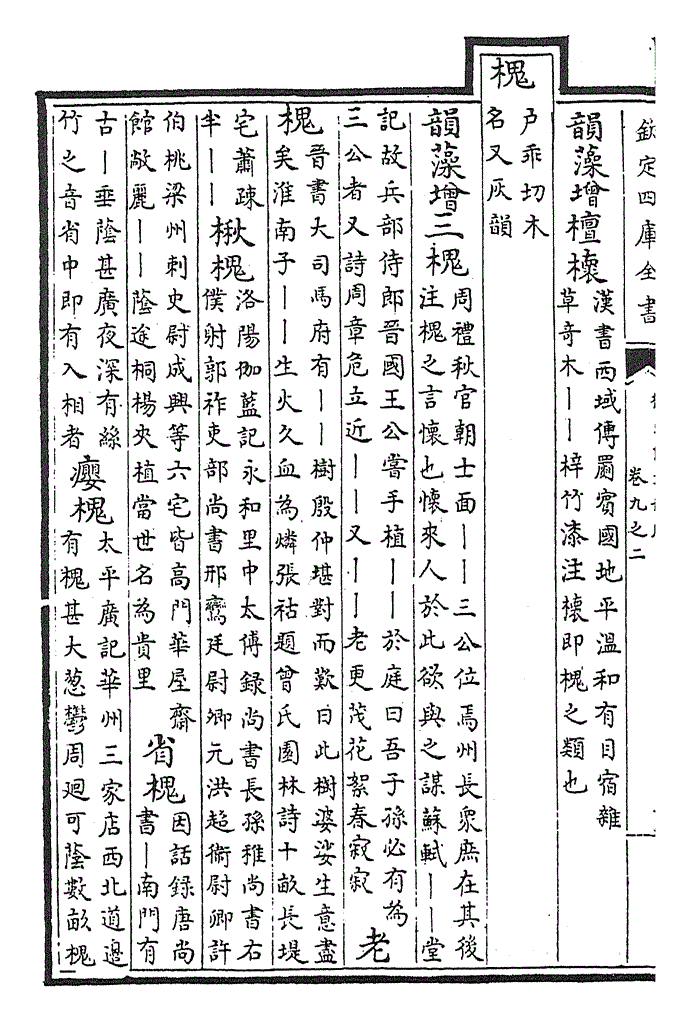 欽定四庫全書
卷九之二
韻藻增檀櫰
漢書西域傳罽賓國地平溫和有目宿雜
草奇木丨丨梓竹漆注櫰即槐之類也
槐
戸乖切木
名又灰韻
韻藻增三槐
周禮秋官朝士面丨丨三公位焉州長衆庶在其後
注槐之言懷也懷來人於此欲與之謀蘇軾丨丨堂
記故兵部侍郎晉國王公嘗手植丨丨於庭曰吾子孫必有為
三公者又詩周章危立近丨丨又丨丨老更茂花絮春寂寂
老
槐
晉書大司馬府有丨丨樹殷仲堪對而歎曰此樹婆娑生意盡
矣淮南子丨丨生火久血為燐張祜題曾氏園林詩十畝長堤
宅蕭疎
半丨丨
楸槐
洛陽伽藍記永和里中太傅錄尚書長孫稚尚書右
僕射郭祚吏部尚書邢鸞廷尉卿元洪超衛尉卿許
伯桃梁州刺史尉成興等六宅皆高門華屋齋
館敞麗丨丨蔭途桐楊夾植當世名為貴里
省槐
因話錄唐尚
書丨南門有
古丨垂蔭甚廣夜深有絲
竹之音省中即有入相者
癭槐
太平廣記華州三家店西北道邊
有槐甚大葱鬱周廻可蔭數畝槐